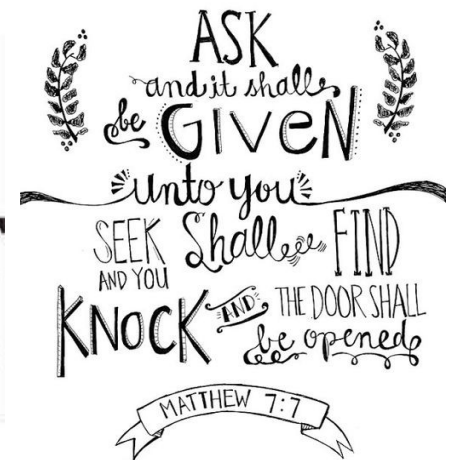 ASK
and it shall
be GIVEN
unto you
SEEK Shall FIND
AND YOU
KNOCK AND THE DOOR SHALL
be opened
MATTHEW 7:7